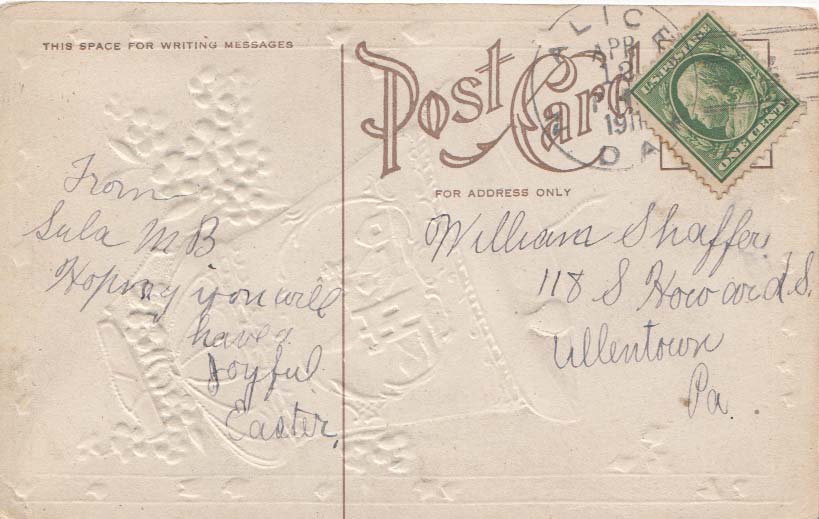 THIS SPACE FOR WRITING MESSAGES
Post Card
ALICE
APR
13
1911
PA
U.S. POSTAGE
ONE CENT
FOR ADDRESS ONLY
From
Sula M B
Hoping you will
have a
Joyful
Easter,
William Shaffer
118 S Howard S.
Allentown
Pa.